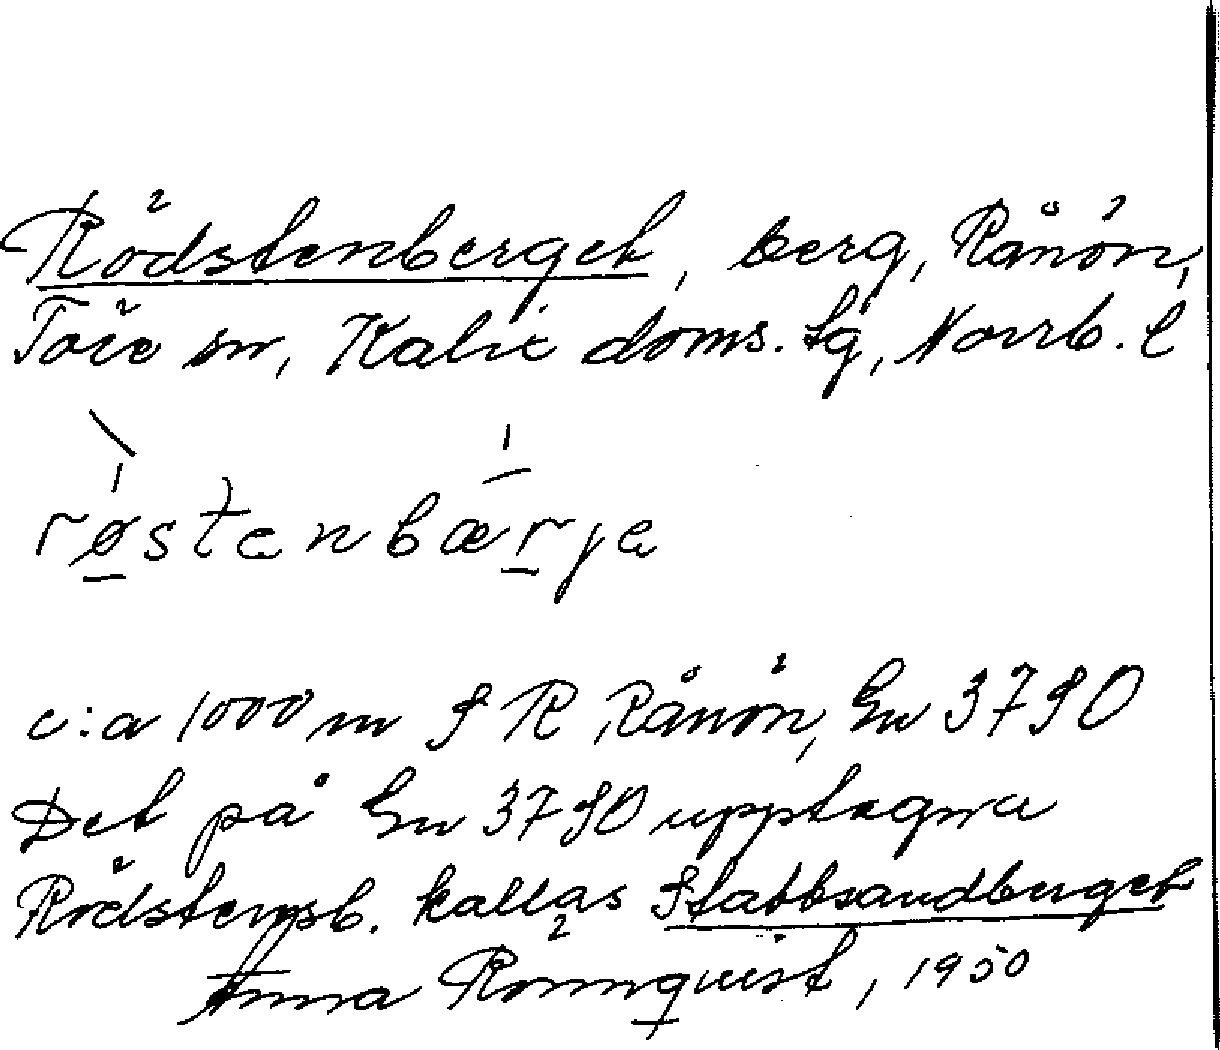 Rödstenberget, berg, Rånön,
Töre sn, Kalix doms. lg, Norrb. l
røstenbærje
c:a 1000 m S R Rånön, En 37 SO
Det på En 37 SO upptagna
Rödstensb. kallas Stabbsandberget
Anna Rönnquist, 1950